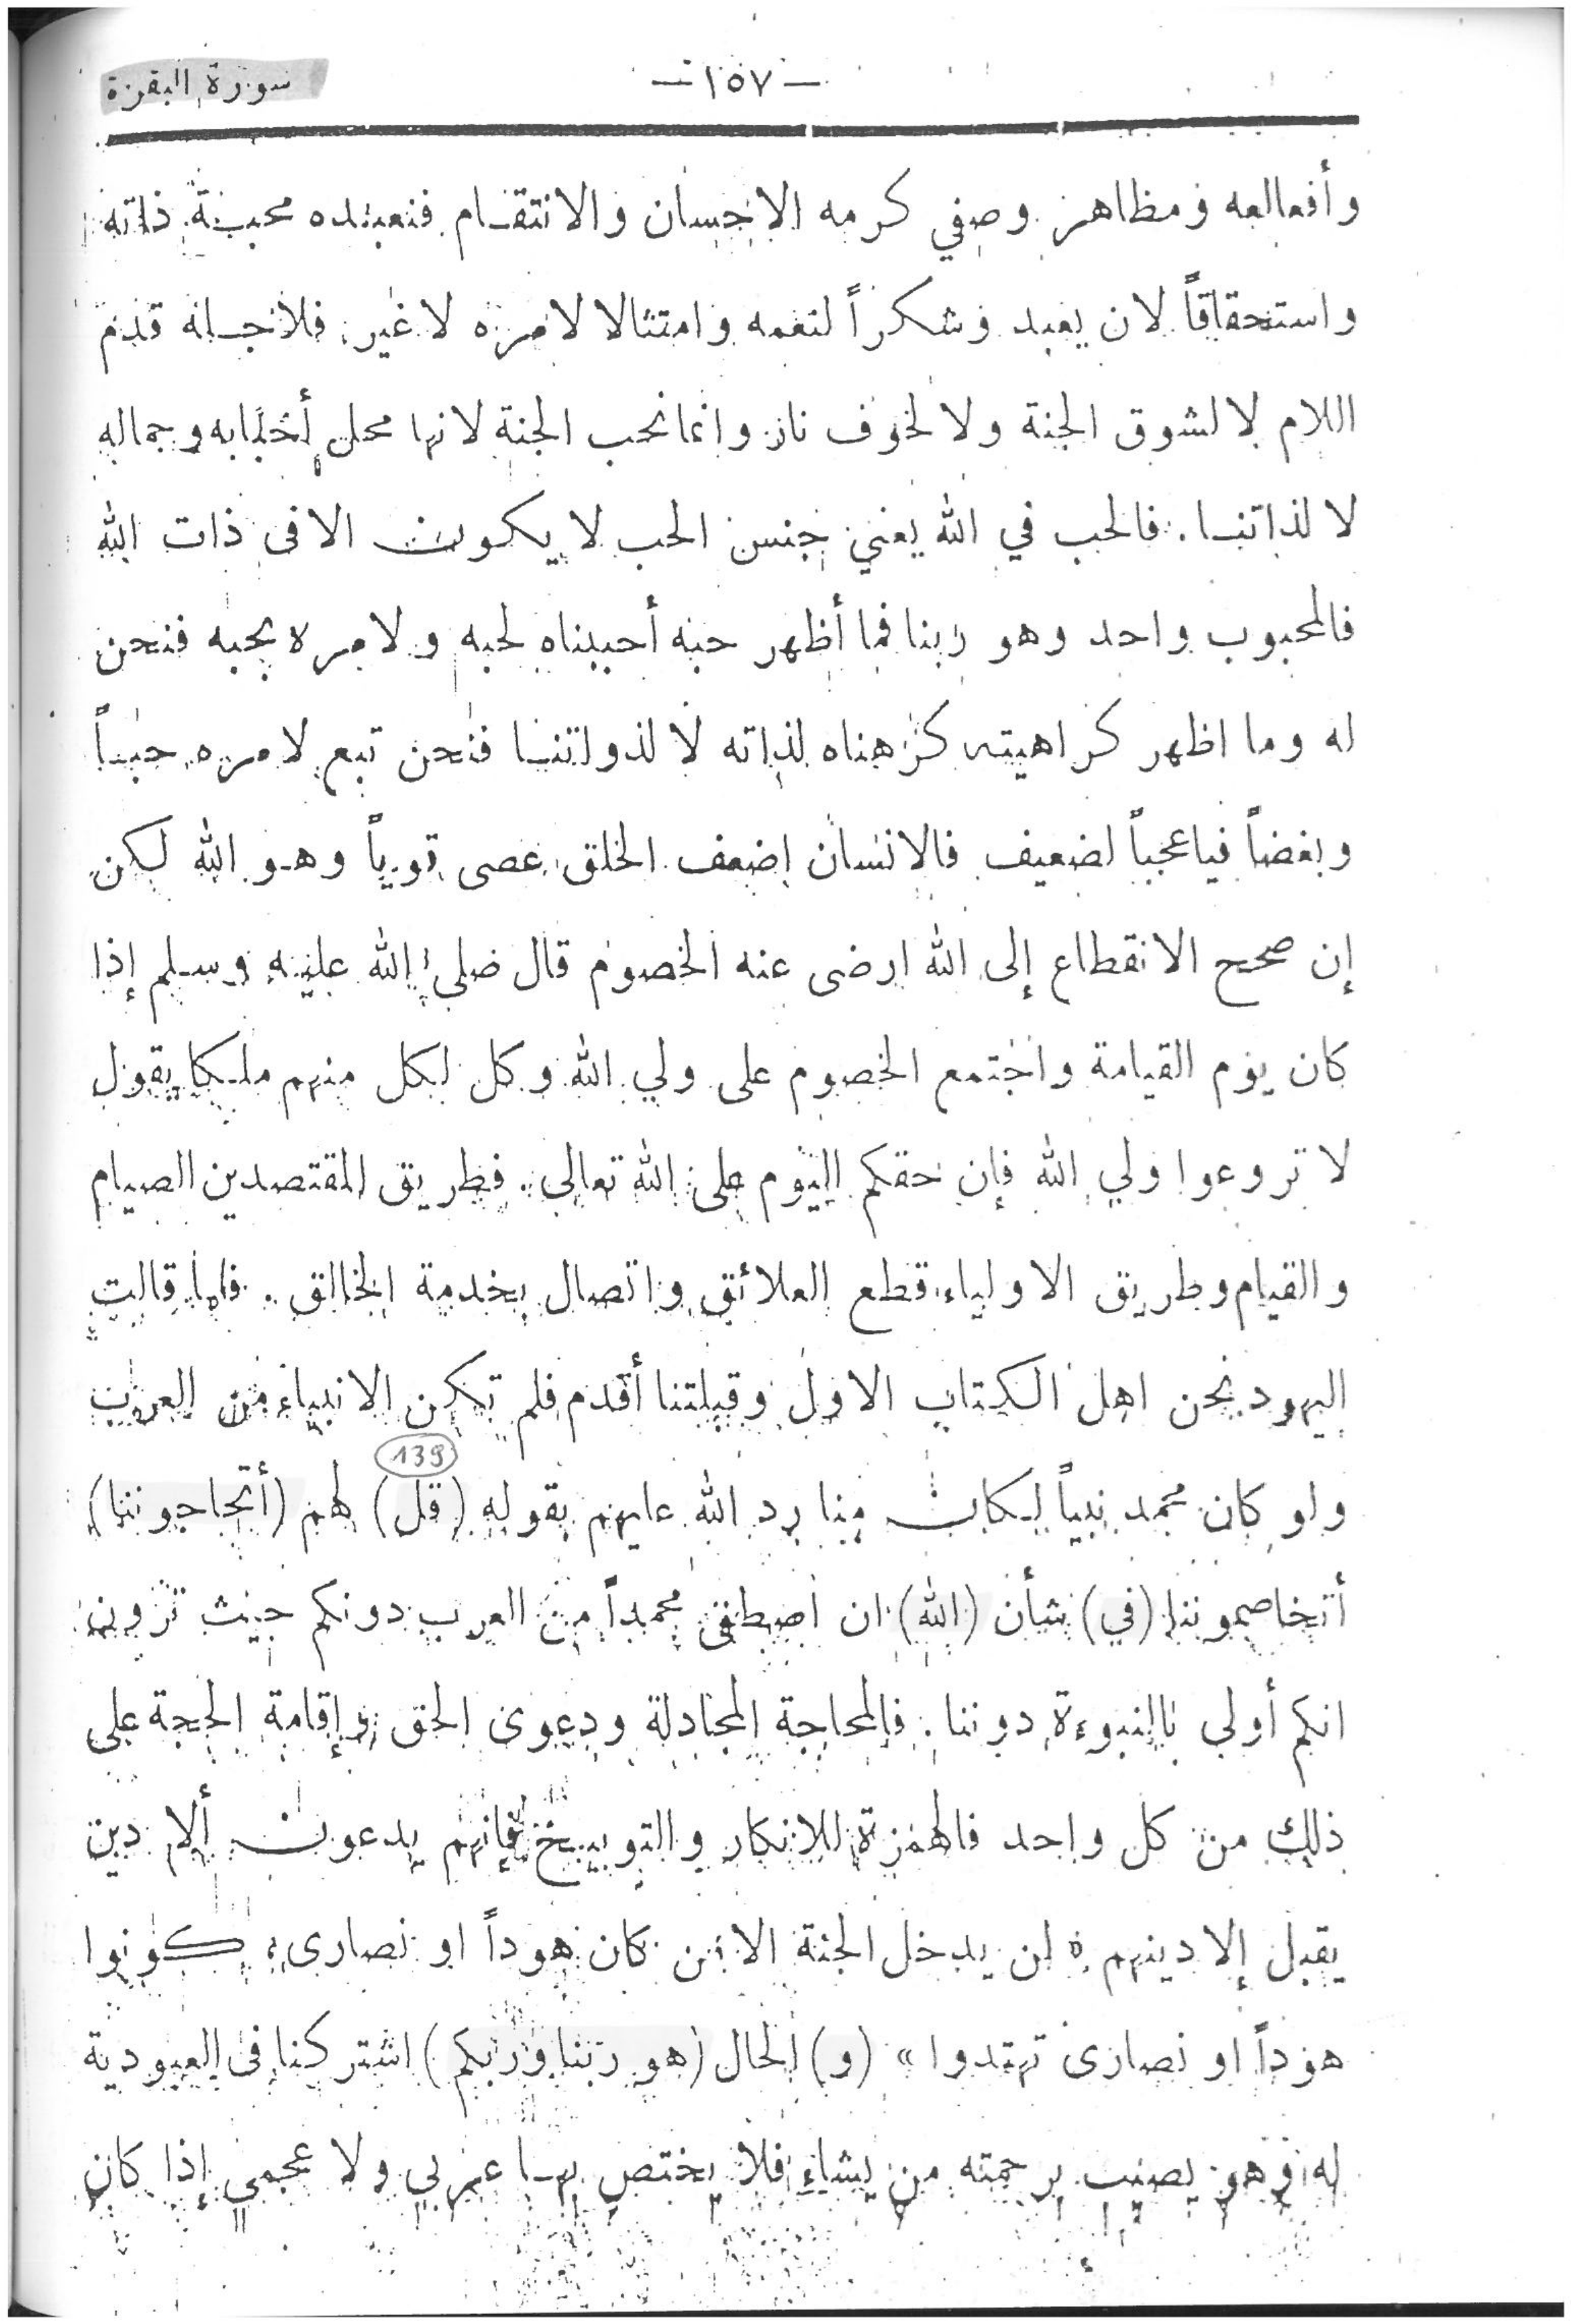 سورة البقرة
— ١٥٧ —
وأفعالعه ومظاهر وصفي كرمه الاحسان والانتقام فنعبده محبة ذاته
واستحقاقاً لان يعبد وشكراً لنعمه وامتثالا لامره لا غير فلاجله قدم
اللام لا لشوق الجنة ولا لخوف نار وانما نحب الجنة لانها محل أحبابه وجماله
لا لذاتنا . فالحب في الله يعني جنس الحب لا يكون الا في ذات الله
فالمحبوب واحد وهو ربنا فما أظهر حبه أحببناه لحبه ولامره بحبه فنحن
له وما اظهر كراهيته كرهناه لذاته لا لذواتنا فنحن تبع لامره حباً
وبغضاً فياعجباً لضعيف فالانسان اضعف الخلق عصى قوياً وهو الله لكن
إن صحح الانقطاع إلى الله ارضى عنه الخصوم قال صلى الله عليه وسلم إذا
كان يوم القيامة واجتمع الخصوم على ولي الله وكل لكل منهم ملكا يقول
لا تروعوا ولي الله فإن حقكم اليوم على الله تعالى . فطريق المقتصدين الصيام
والقيام وطريق الاولياء قطع العلائق واتصال بخدمة الخالق . فلما قالت
اليهود نحن اهل الكتاب الاول وقبلتنا أقدم فلم تكن الانبياء من العرب
139
ولو كان محمد نبياً لكان منا رد الله عليهم بقوله (قل) لهم (أتحاجوننا)
أتخاصموننا (في) شأن (الله) ان اصطفى محمداً من العرب دونكم حيث ترون
انكم أولى بالنبوءة دوننا . فالمحاجة المجادلة ودعوى الحق وإقامة الحجة على
ذلك من كل واحد فالهمزة للانكار والتوبيخ فإنهم يدعون ألا دين
يقبل إلا دينهم لن يدخل الجنة الا من كان هوداً او نصارى ، كونوا
هوداً او نصارى تهتدوا » (و) الحال (هو ربنا وربكم) اشتركنا في العبودية
له وهو يصيب برحمته من يشاء فلا يختص بها عربي ولا عجمي إذا كان